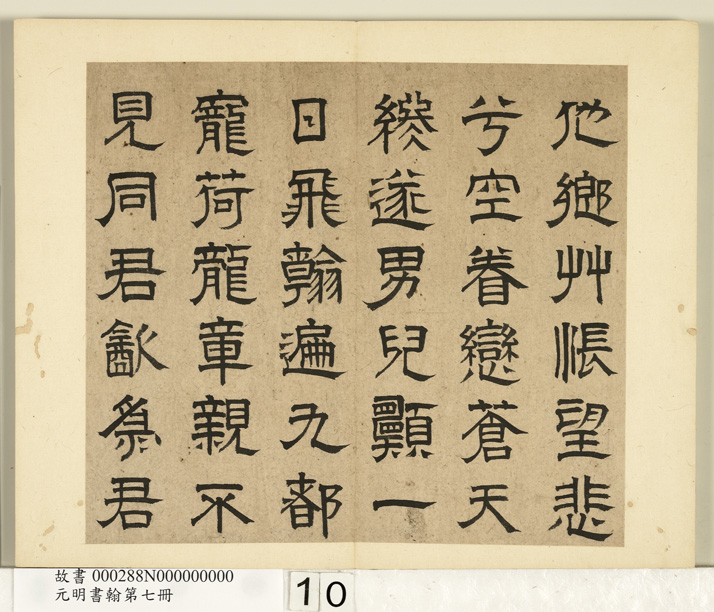 他鄉艸悵望悲
兮空眷戀蒼天
緱遂男兒顯一
日飛翰遍九都
寵荷龍章親不
見同君歙為君
故書 000288N000000000
元明書翰第七冊
10